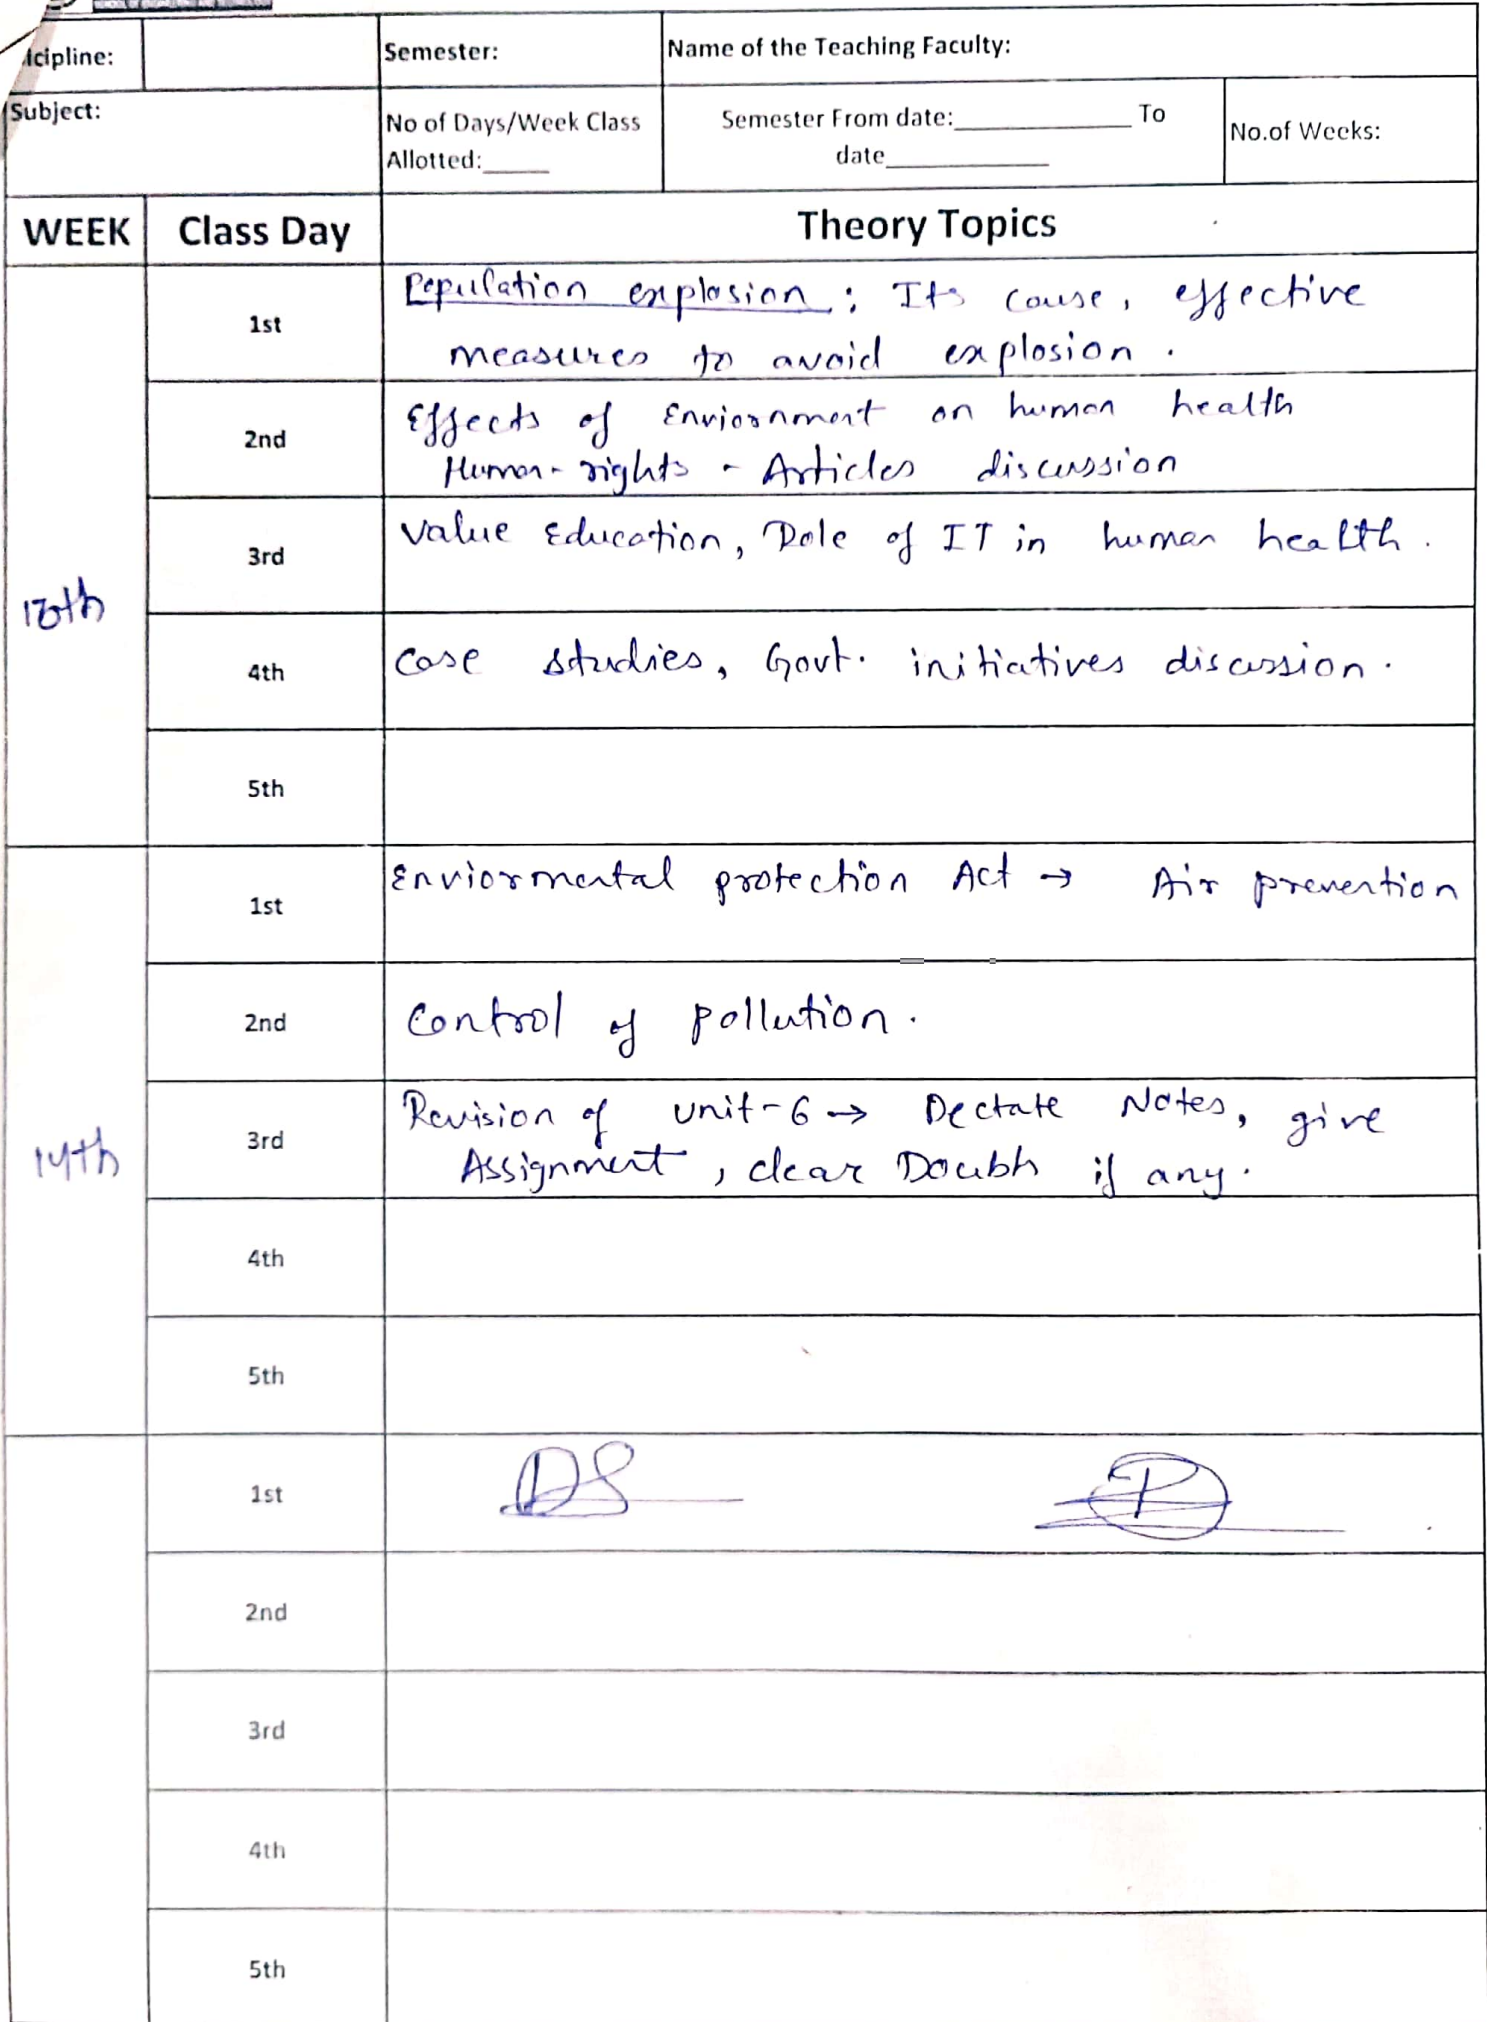 cipline:
Semester:
Name of the Teaching Faculty:
Subject:
No of Days/Week Class
Allotted:_____
Semester From date:______________ To
date_____________
No.of Weeks:
WEEK
Class Day
Theory Topics
13th
1st
Population explosion : Its cause, effective
measures to avoid explosion .
2nd
Effects of Enviornment on human health
Human-rights - Articles discussion
3rd
Value Education, Role of IT in human health .
4th
Case studies, Govt. initiatives discussion .
5th
14th
1st
Enviormental protection Act → Air prevention
2nd
Control of pollution .
3rd
Revision of unit-6 → Dectate Notes, give
Assignment , clear Doubts if any .
4th
5th
1st
2nd
3rd
4th
5th